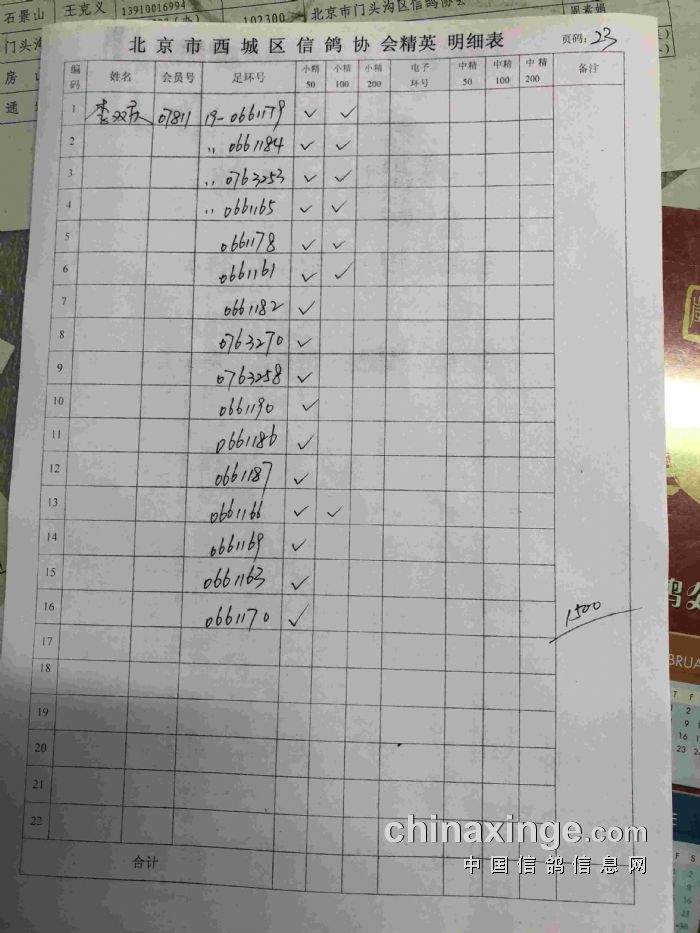 石景山 王克义 13910016994 102300 北京市门头沟区信鸽协会 周素娟
门头沟
房山
通
北京市西城区信鸽协会精英明细表 页码：23
编码 姓名 会员号 足环号 小精50 小精100 小精200 电子环号 中精50 中精100 中精200 备注
1 07811 19-0661179 ✓ ✓
2 〃 0661184 ✓ ✓
3 〃 0763253 ✓ ✓
4 〃 0661165 ✓ ✓
5 0661178 ✓ ✓
6 0661161 ✓ ✓
7 0661182 ✓
8 0763270 ✓
9 0763258 ✓
10 0661190 ✓
11 0661186 ✓
12 0661187 ✓
13 0661166 ✓ ✓
14 0661169 ✓
15 0661163 ✓
16 0661170 ✓ 1500
17
18
19
20
21
22
合计
chinaxinge.com
中国信鸽信息网